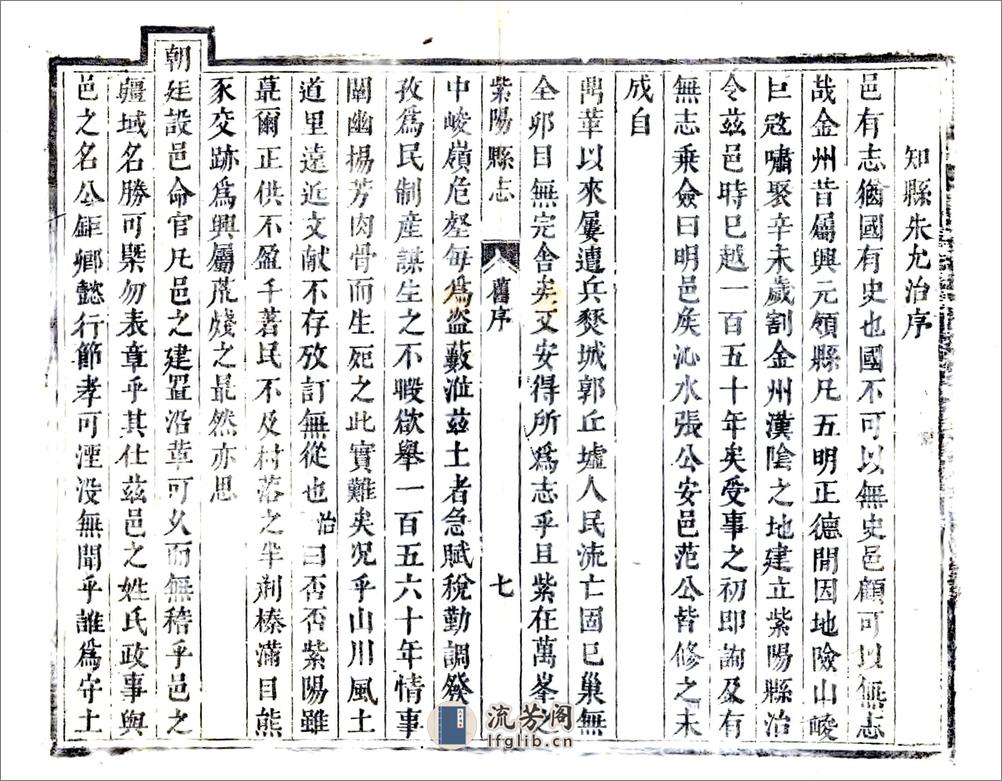 知縣朱允治序
邑有志猶國有史也國不可以無史邑顧可以無志
哉金州昔屬興元領縣凡五明正德間因地險山峻
巨寇嘯聚辛未歲割金州漢陰之地建立紫陽縣治
令茲邑時已越一百五十年矣受事之初即詢及有
無志乘僉曰明邑矦沁水張公安邑范公皆修之未
成自
禹革以來屢遭兵燹城郭丘墟人民流亡固已巢無
全卵目無完舍矣又安得所為志乎且紫在萬峯
紫陽縣志 舊序 七
中峻嶺危壑每為盜藪涖茲土者急賦稅勤調發
孜為民制產謀生之不暇欲舉一百五六十年情事
闡幽揚芳肉骨而生死之此實難矣况乎山川風土
道里遠近文献不存攷訂無從也治曰否否紫陽雖
蕞爾正供不盈千著民不及村落之半荊榛滿目熊
豕交跡為興屬荒殘之最然亦思
朝廷設邑命官凡邑之建置沿革可久而無稽乎邑之
疆域名勝可槩勿表章乎其仕茲邑之姓氏政事與
邑之名公鉅鄉懿行節孝可湮没無聞乎誰為守土
流芳阁
lfglib.cn